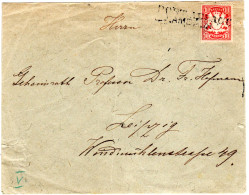 Herrn
Geheimrath Professor Dr. Fr. Hofmann
Leipzig
Windmühlenstrasse 49
V.